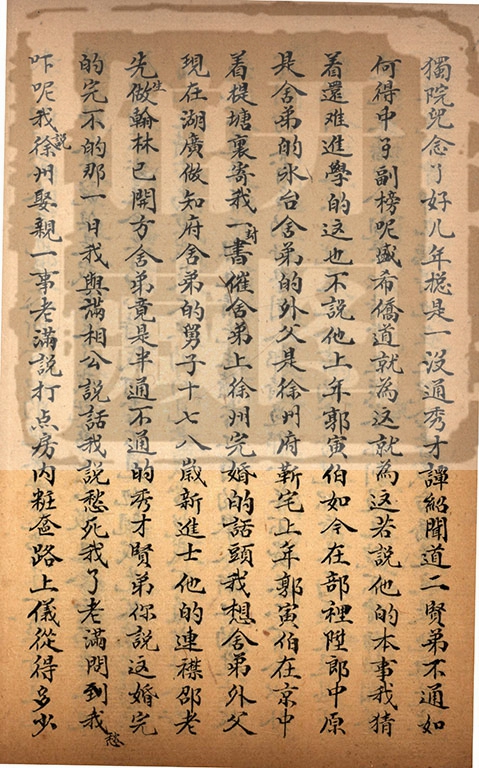 獨院兒念了好几年揔是一没通秀才譚紹聞道二賢弟不通如
何得中了副榜呢盛希僑道就為這就為這若說他的本事我猜
着還难進學的這也不說他上年郭寅伯如今在部裡陞郎中原
是舍弟的冰台舍弟的外父是徐州府靳宅上年郭寅伯在京中
着提塘裏寄我一封書催舍弟上徐州完婚的話頭我想舍弟外父
現在湖廣做知府舍弟的舅子十七八歲新進士他的連襟邵老
先生做翰林已開方舍弟竟是半通不通的秀才賢弟你說這婚完
的完不的那一日我與滿相公說話我說愁死我了老滿問到我愁
咋呢我說徐州娶親一事老滿說打点房内粧奩路上儀從得多少